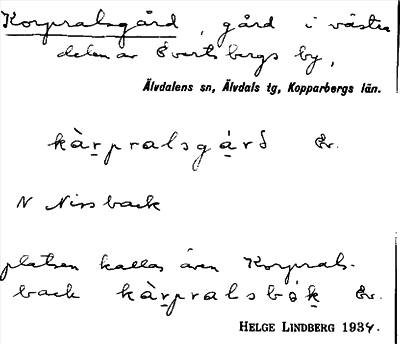 Korpralsgård, gård i västra
delen av Evertsbergs by,
Älvdalens sn, Älvdals tg, Kopparbergs län.
kàr̲pralsgá̲rd Ev.
N Nissback
platsen kallas även Korprals-
back kàr̲pralsbók̲ Ev.
HELGE LINDBERG 1934.